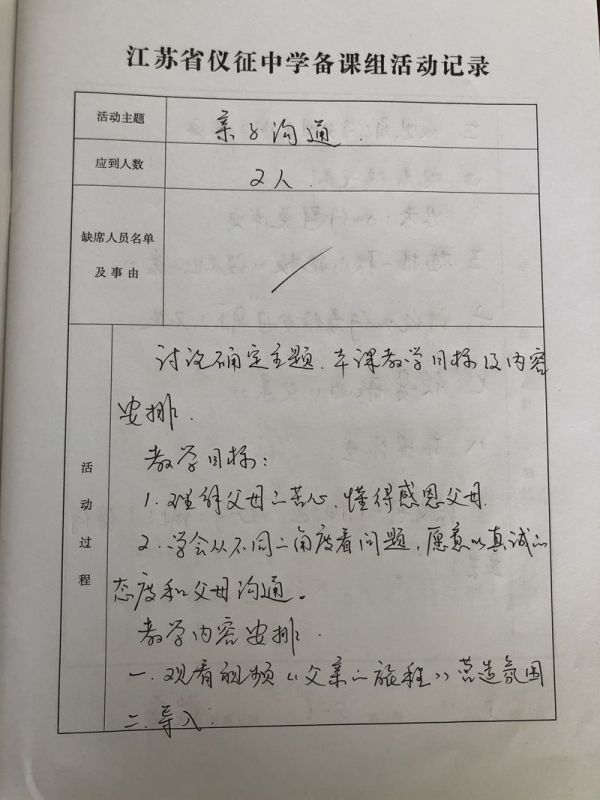 江苏省仪征中学备课组活动记录
活动主题
亲子沟通.
应到人数
2人.
缺席人员名单
及事由
活动过程
讨论确定主题.本课教学目标及内容
安排.
教学目标:
1.理解父母的苦心,懂得感恩父母.
2.学会从不同的角度看问题,愿意以真诚的
态度和父母沟通。
教学内容安排.
一.观看视频《父亲的旅程》营造氛围
二.导入: